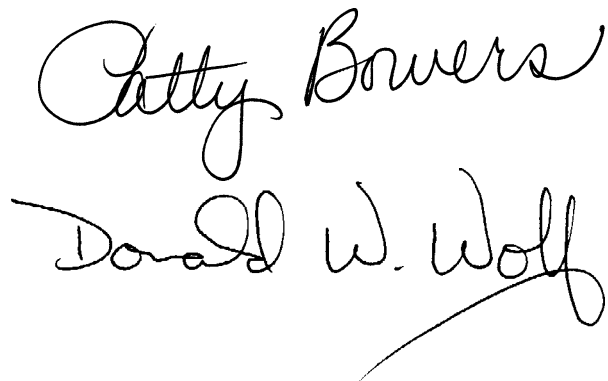 Patty Bowers
Donald W. Wolf